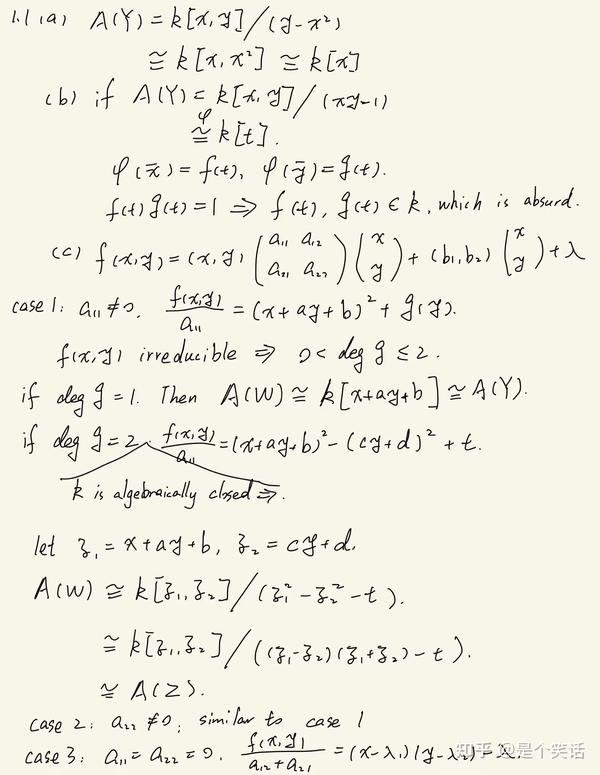 1.1 (a) A(Y) = k[x,y]/(y-x²)
≅ k[x,x²] ≅ k[x]
(b) if A(Y) = k[x,y]/(xy-1)
φ
≅ k[t].
φ(x̄) = f(t), φ(ȳ) = g(t).
f(t)g(t) = 1 ⇒ f(t), g(t) ∈ k, which is absurd.
(c) f(x,y) = (x,y) (a₁₁ a₁₂ a₂₁ a₂₂) (x y) + (b₁,b₂) (x y) + λ
case 1: a₁₁ ≠ 0. f(x,y)/a₁₁ = (x+ay+b)² + g(y).
f(x,y) irreducible ⇒ 0 < deg g ≤ 2.
if deg g = 1. Then A(W) ≅ k[x+ay+b] ≅ A(Y).
if deg g = 2. f(x,y)/a₁₁ = (x+ay+b)² - (cy+d)² + t.
k is algebraically closed ⇒.
let ξ₁ = x+ay+b, ξ₂ = cy+d.
A(W) ≅ k[ξ₁,ξ₂]/(ξ₁²-ξ₂²-t).
≅ k[ξ₁,ξ₂]/((ξ₁-ξ₂)(ξ₁+ξ₂)-t).
≅ A(Z).
case 2: a₂₂ ≠ 0, similar to case 1
case 3: a₁₁ = a₂₂ = 0. f(x,y)/a₁₂+a₂₁ = (x-λ₁)(y-λ₂)-
知乎 @是个笑话